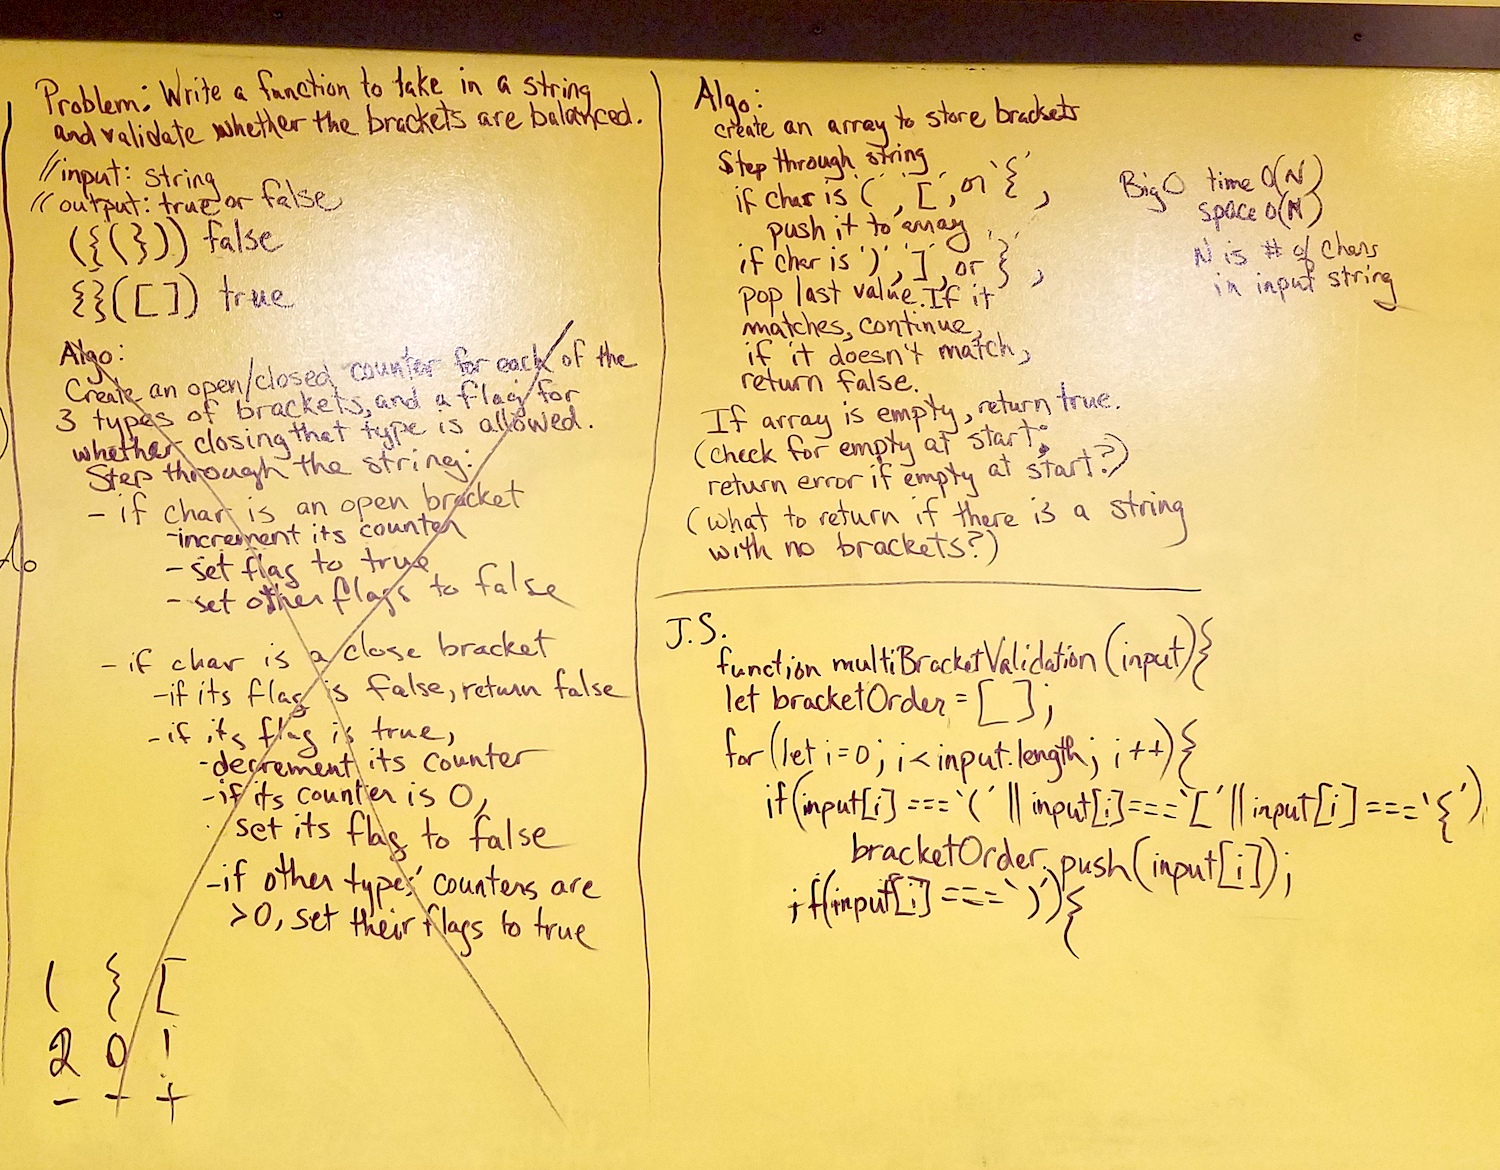 Problem: Write a function to take in a string
and validate whether the brackets are balanced.
//input: string
//output: true or false
({(})) false
{}([]) true
Algo:
Create an open/closed counter for each of the
3 types of brackets, and a flag for
whether closing that type is allowed.
Step through the string:
- if char is an open bracket
- increment its counter
- set flag to true
- set other flags to false
- if char is a close bracket
- if its flag is false, return false
- if its flag is true,
- decrement its counter
- if its counter is 0,
set its flag to false
- if other types' counters are
>0, set their flags to true
( { [
2 0 1
- + +
Algo:
create an array to store brackets
Step through string
if char is '(', '[', or '{',
push it to array
if char is ')', ']', or '}',
pop last value. If it
matches, continue,
if it doesn't match,
return false.
If array is empty, return true.
(check for empty at start;
return error if empty at start?)
(what to return if there is a string
with no brackets?)
Big O time O(N)
space O(N)
N is # of chars
in input string
J.S.
function multiBracketValidation(input){
let bracketOrder = [];
for (let i=0; i<input.length; i++){
if(input[i] === '(' || input[i] === '[' || input[i] === '{')
bracketOrder.push(input[i]);
if(input[i] === ')'){